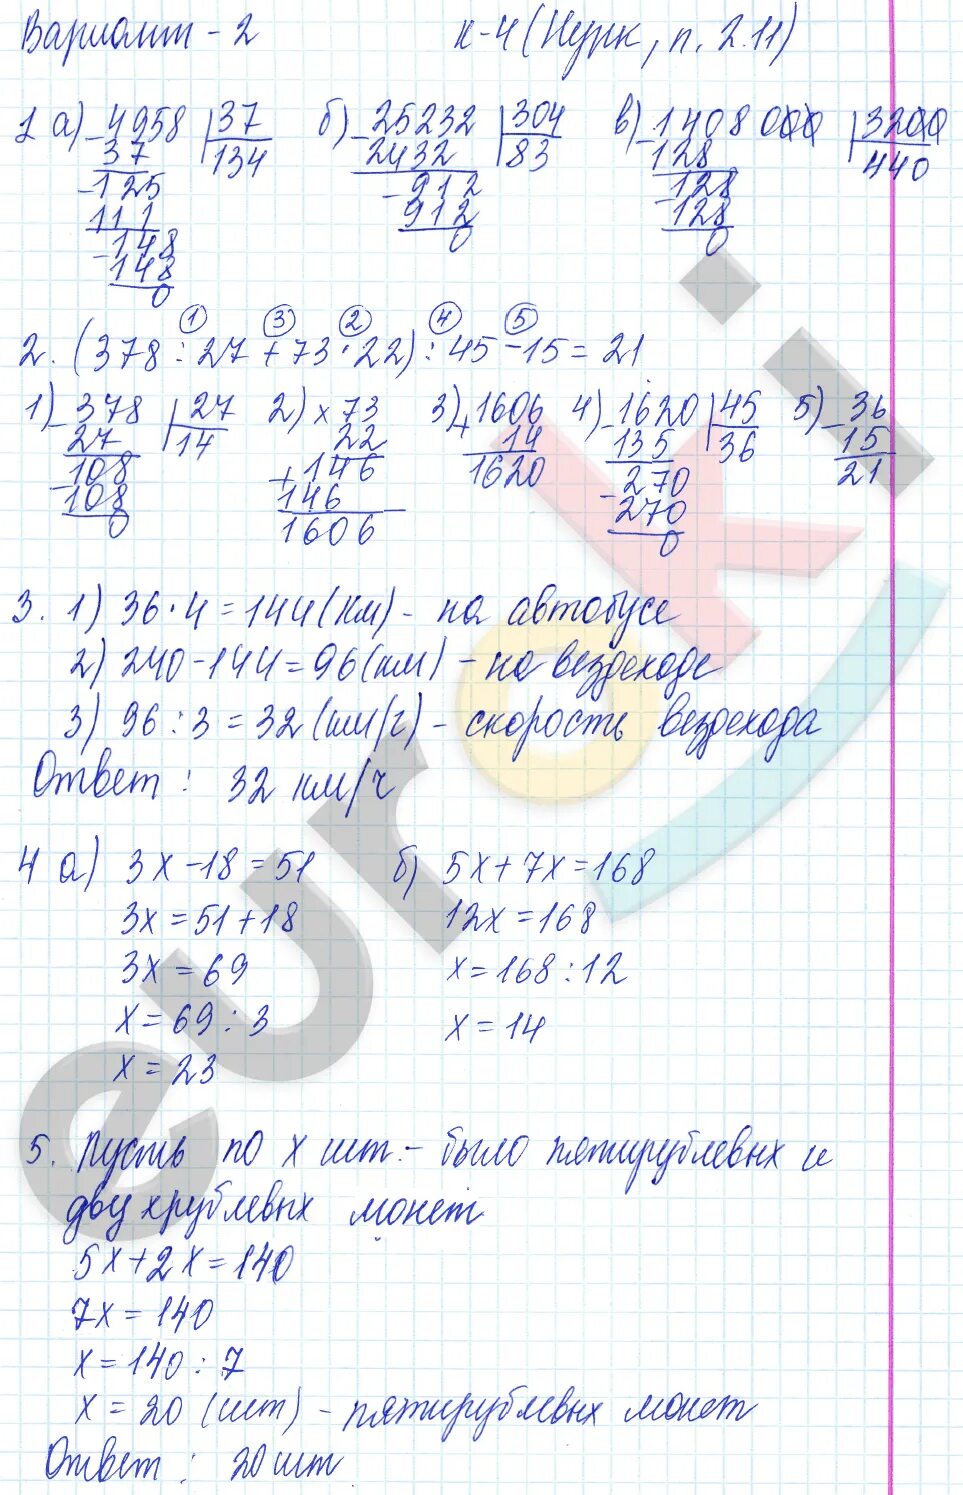 Вариант - 2 К-4 (Нурк, п. 2.11)
1 а) 4958 | 37 б) 25232 | 304 в) 1408000 | 3200
- 37 134 - 2432 83 - 128 440
- 125 - 912 - 128
111 912 128
- 148 0 0
148
0
① ③ ② ④ ⑤
2. (378 : 27 + 73 · 22) : 45 - 15 = 21
1) - 378 | 27 2) x 73 3) + 1606 4) - 1620 | 45 5) - 36
27 14 22 14 135 36 15
- 108 + 146 1620 - 270 21
108 146 270
0 1606 0
3. 1) 36 · 4 = 144 (км) - на автобусе
2) 240 - 144 = 96 (км) - на вездеходе
3) 96 : 3 = 32 (км/ч) - скорость вездехода
Ответ : 32 км/ч
4 а) 3x - 18 = 51 б) 5x + 7x = 168
3x = 51 + 18 12x = 168
3x = 69 x = 168 : 12
x = 69 : 3 x = 14
x = 23
5. Пусть по x шт. - было пятирублевых и
двухрублевых монет
5x + 2x = 140
7x = 140
x = 140 : 7
x = 20 (шт) - пятирублевых монет
Ответ : 20 шт
euroki